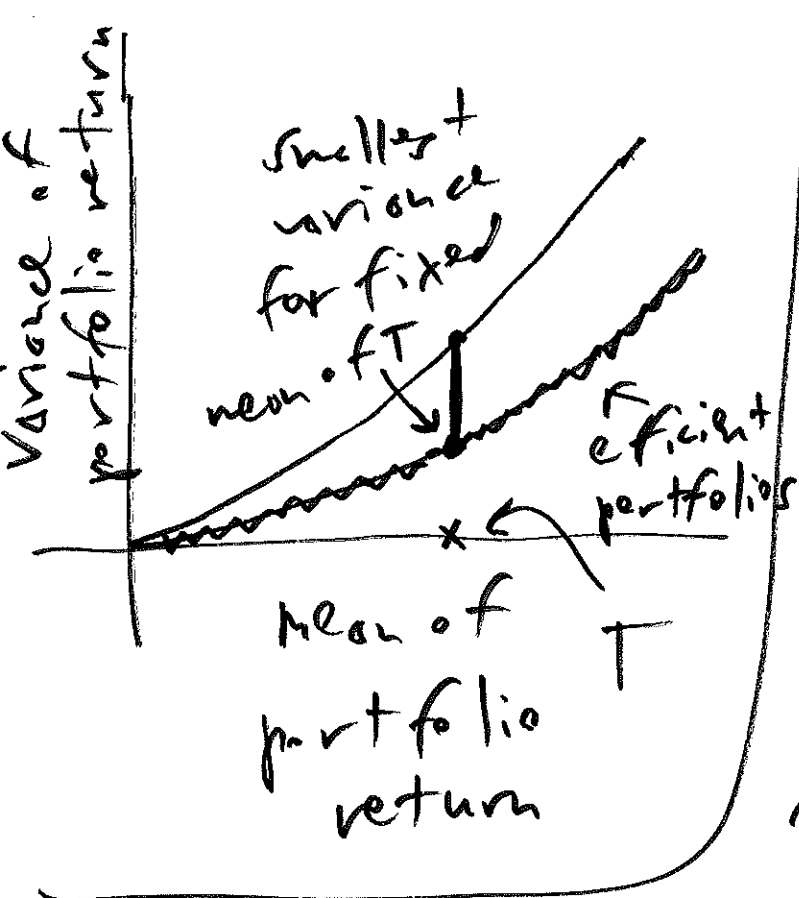 Variance of
portfolio return
smallest
variance
for fixed
mean of T
efficient
portfolios
x
T
mean of
portfolio
return